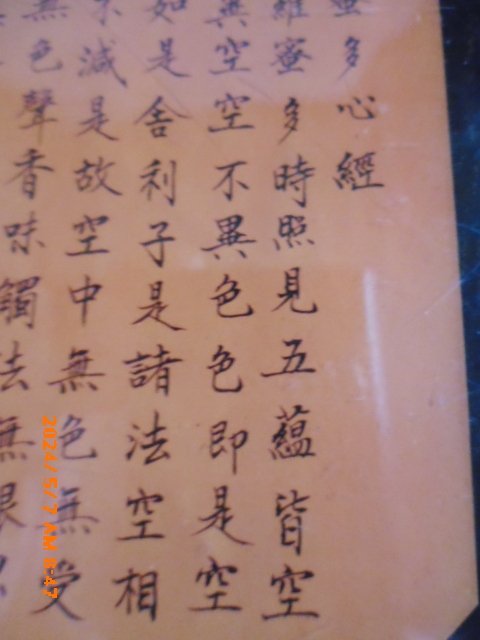 蜜多心經
羅蜜多時照見五蘊皆空
異空空不異色色即是空
如是舍利子是諸法空相
不減是故空中無色無受
無色聲香味觸法無眼
2024/5/7 AM 8:47